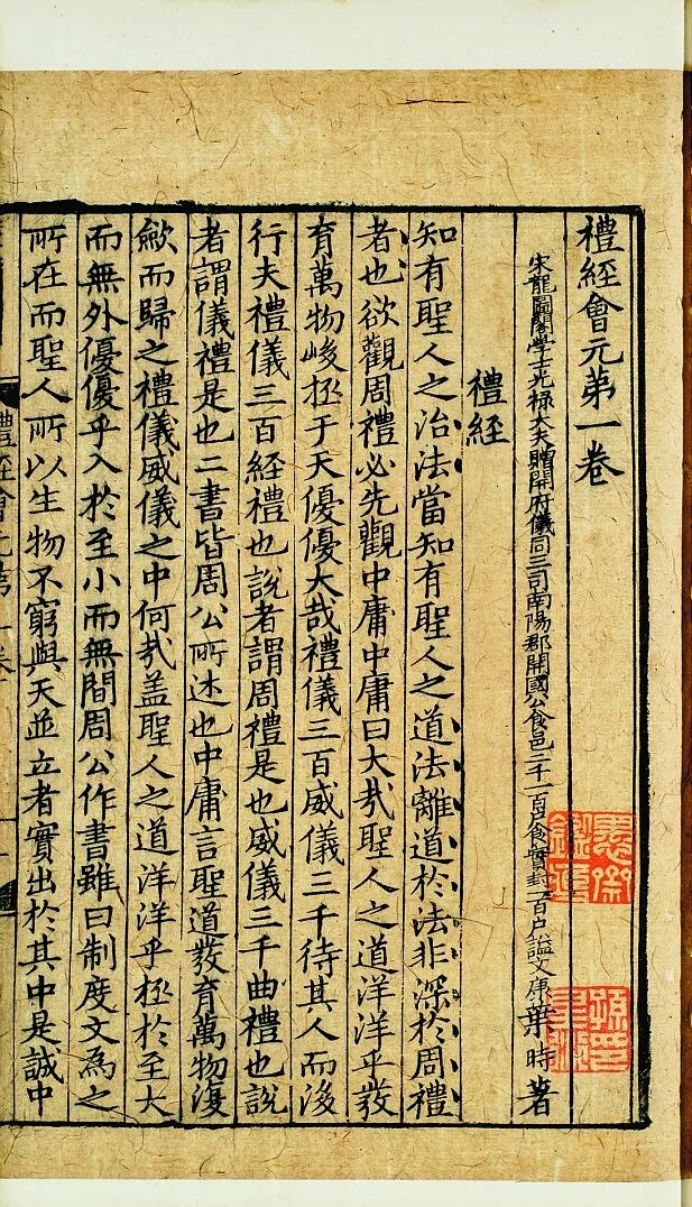 禮經會元第一卷
宋龍圖閣學士光祿大夫贈開府儀同三司南陽郡開國公食邑三千一百戶食實封一百戶謚文康葉時著
禮經
知有聖人之治法當知有聖人之道法離道於法非深於周禮
者也欲觀周禮必先觀中庸中庸曰大㦲聖人之道洋洋乎發
育萬物峻極于天優優大哉禮儀三百威儀三千待其人而後
行夫禮儀三百經禮也說者謂周禮是也威儀三千曲禮也說
者謂儀禮是也二書皆周公所述也中庸言聖道發育萬物復
歛而歸之禮儀威儀之中何㦲盖聖人之道洋洋乎極於至大
而無外優優乎入於至小而無間周公作書雖曰制度文為之
所在而聖人所以生物不窮與天並立者實出於其中是誠中